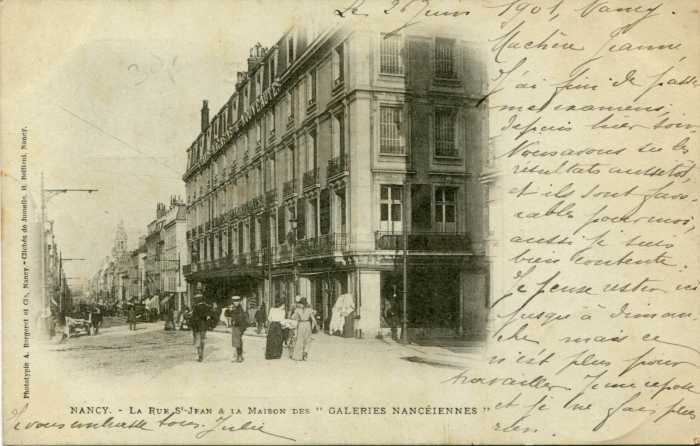 Le 26 Juin 1901, Nancy.
Ma chère Jeanne
J'ai fini de passer
mes examens
depuis hier soir
Nous avons su les
résultats aussitôt,
et ils sont favo
rables pour moi,
aussi je suis
bien contente.
Je pense rester ici
jusque à diman-
che mais ce
n'est plus pour
travailler. Je me repose
et je ne fais plus
rien.
Je vous embrasse tous. Julie
NANCY. - LA RUE St-JEAN & LA MAISON DES " GALERIES NANCÉIENNES "
Phototypie A. Bergeret et Cie, Nancy. - Clichés de Jumelle, H. Bellieni, Nancy.